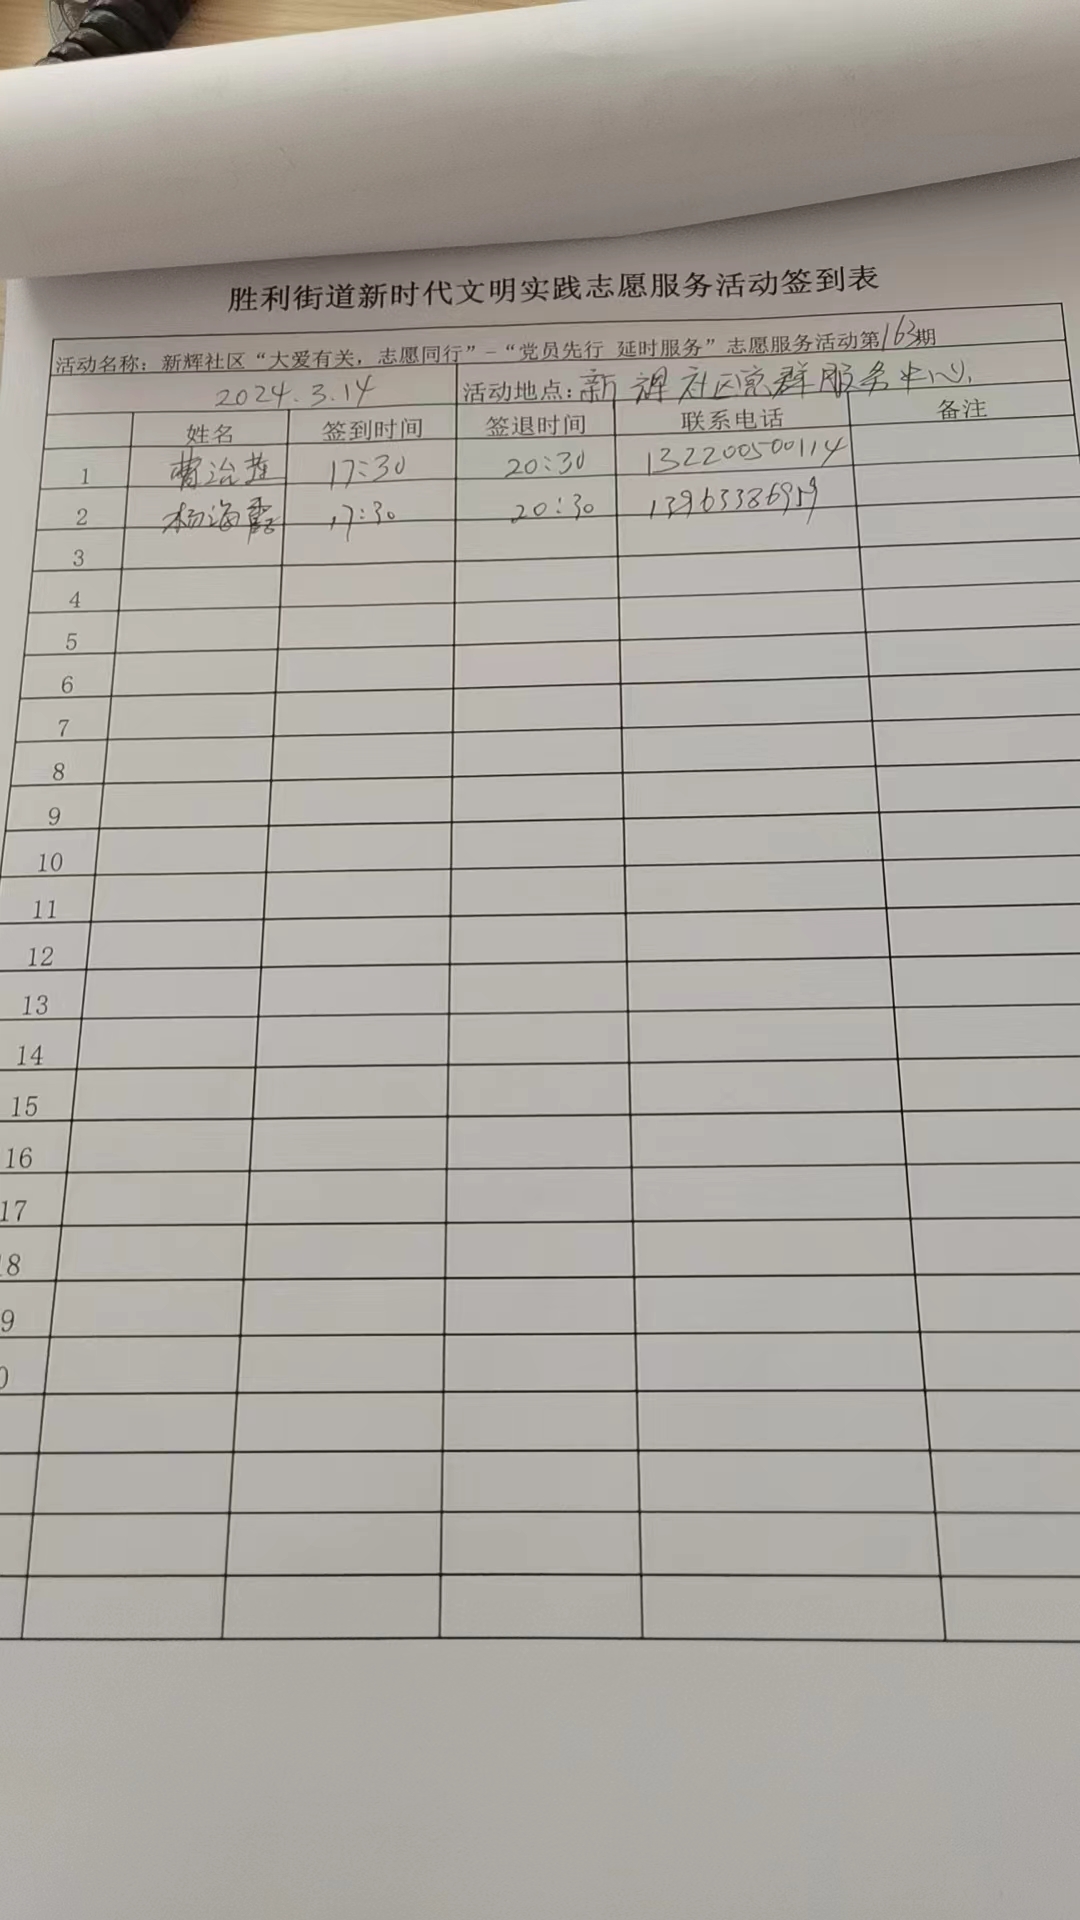 胜利街道新时代文明实践志愿服务活动签到表
活动名称：新辉社区“大爱有关，志愿同行”–“党员先行 延时服务”志愿服务活动第163期
2024.3.14 活动地点：新辉社区党群服务中心.
姓名 签到时间 签退时间 联系电话 备注
1 曹治 17:30 20:30 132200500114
2 杨海霞 17:30 20:30 13963386959
3
4
5
6
7
8
9
10
11
12
13
14
15
16
17
18
9
0